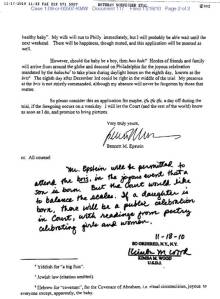 11-17-2010 11:55 FAX 212 571 5507
Case 1:09-cr-00507-KMW Document 117 Filed 11/18/10 Page 2 of 2
healthy baby". My wife will run to Philly immediately, but I will probably be able wait until the
next weekend. There will be happiness, though muted, and this application will be mooted as
well.
However, should the baby be a boy, then hoo hah! Hordes of friends and family
will arrive from around the globe and descend on Philadelphia for the joyous celebration
mandated by the halacha to take place during daylight hours on the eighth day, known as the
bris. The eighth day after December 3rd could be right in the middle of the trial. My presence
at the bris is not strictly commanded, although my absence will never be forgiven by those that
matter.
So please consider this an application for maybe,
trial, if the foregoing occurs on a weekday. I will let the Court (and the rest of the world) know
as soon as I do, and I bring pictures.
Very truly yours,
Bennett M. Epstein
cc: All counsel
Mr. Epstein will be permitted to
attend the bris, in the joyous event that a
son is born. But the Court would like
to balance the scales. If a daughter is
born, there will be a public celebration
in Court, with readings from poetry
celebrating girls and women.
11-18-10
SO ORDERED, N.Y., N.Y.
Kimba M. Wood
KIMBA M. WOOD
U.S.D.J.
Yiddish for "a big fuss".
Jewish law (absolute nonfiction).
Hebrew for "covenant", for the Covenant of Abraham, i.e. ritual circumcision, joyous to
everyone except, apparently, the baby.